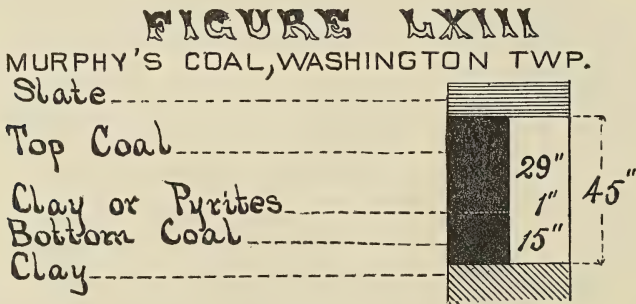 FIGURE LXIII
MURPHY'S COAL, WASHINGTON TWP.
Slate
Top Coal
29"
Clay or Pyrites
1"
45"
Bottom Coal
15"
Clay